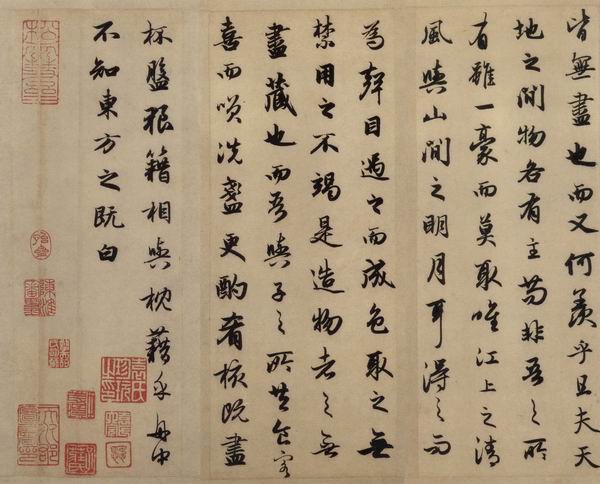 皆無盡也而又何羨乎且夫天
地之間物各有主苟非吾之所
有雖一豪而莫取唯江上之清
風與山間之明月耳得之而
為聲目遇之而成色取之無
禁用之不竭是造物者之無
盡藏也而吾與子之所共食客
喜而笑洗盞更酌肴核既盡
杯盤狼籍相與枕藉乎舟中
不知東方之既白